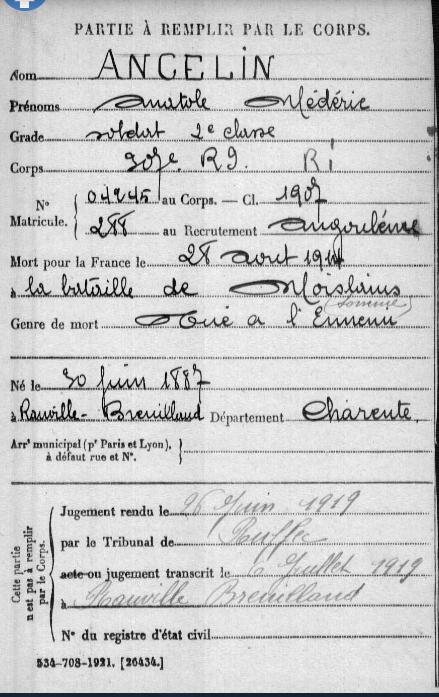 PARTIE À REMPLIR PAR LE CORPS.
Nom ANCELIN
Prénoms Anatole Médéric
Grade soldat 2e classe
Corps 307e R I. RI
N° Matricule. 04245 au Corps. — Cl. 1907
288 au Recrutement Angoulême
Mort pour la France le 28 aout 1914
à la bataille de Moislains (Somme)
Genre de mort Tué a l'Ennemi
Né le 30 Juin 1887
à Ranville-Breuillaud Département Charente.
Arr^t municipal (p^r Paris et Lyon), à défaut rue et N°.
Cette partie n'est pas à remplir par le Corps.
Jugement rendu le 26 Juin 1919
par le Tribunal de Ruffec
acte ou jugement transcrit le 6 Juillet 1919
à Ranville Breuillaud
N° du registre d'état civil
534-708-1921. [26434.]